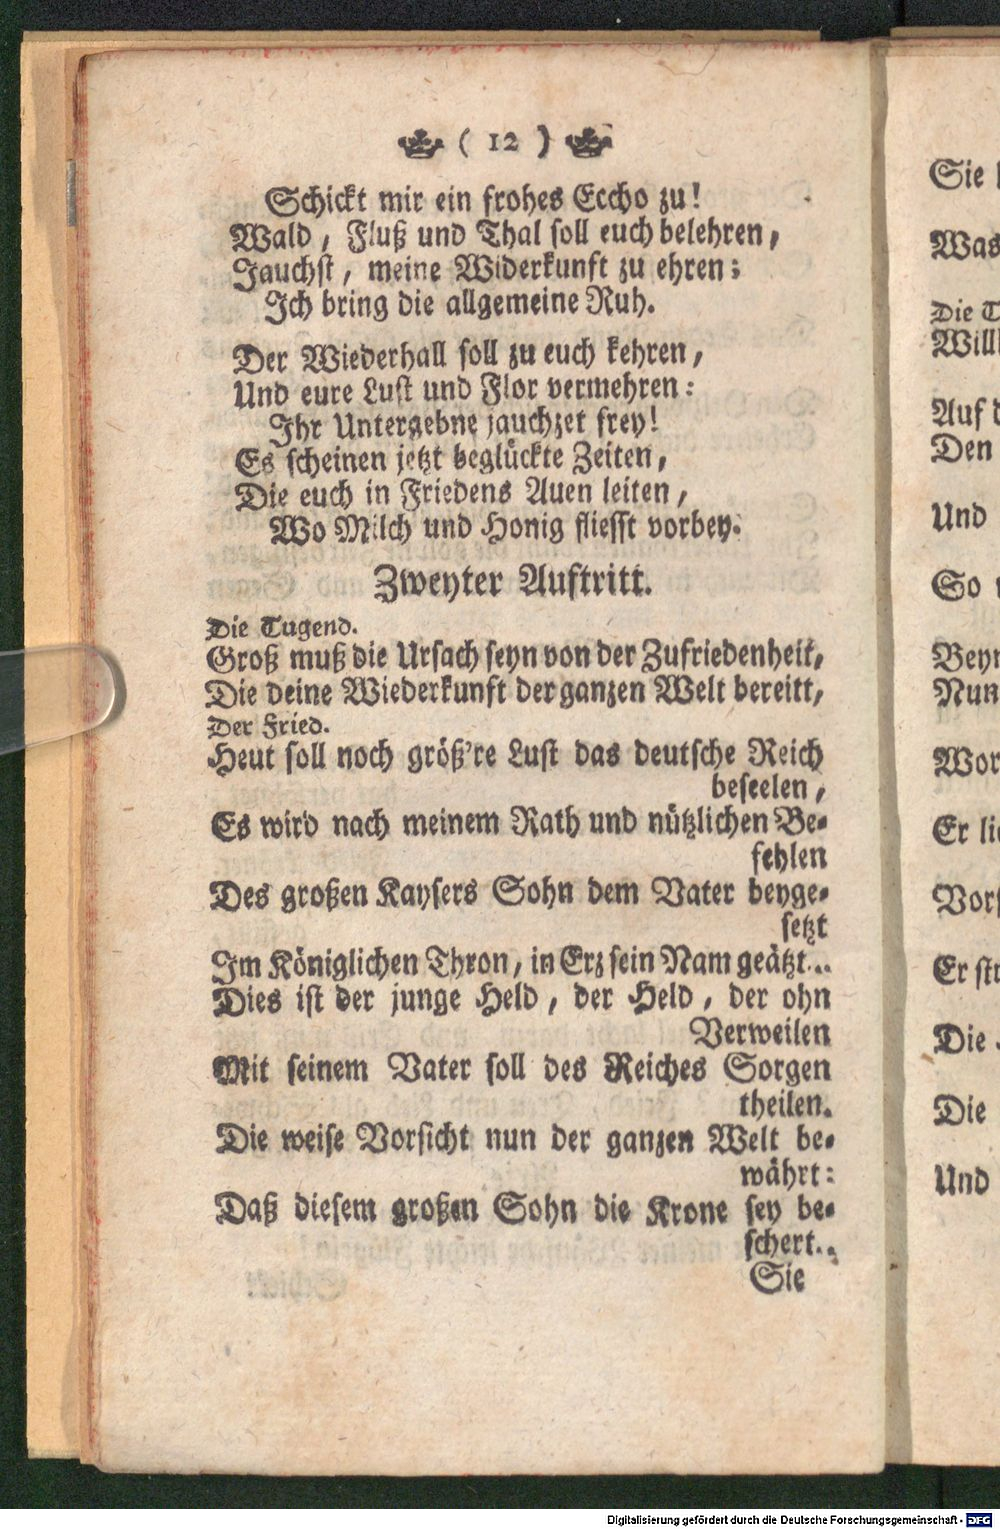 ( 12 )
Schickt mir ein frohes Eccho zu!
Wald, Fluß und Thal soll euch belehren,
Jauchst, meine Widerkunft zu ehren;
Ich bring die allgemeine Ruh.
Der Wiederhall soll zu euch kehren,
Und eure Lust und Flor vermehren:
Ihr Untergebne jauchzet frey!
Es scheinen jetzt beglückte Zeiten,
Die euch in Friedens Auen leiten,
Wo Milch und Honig fliesst vorbey.
Zweyter Auftritt.
Die Tugend.
Groß muß die Ursach seyn von der Zufriedenheit,
Die deine Wiederkunft der ganzen Welt bereitt,
Der Fried.
Heut soll noch größ're Lust das deutsche Reich
beseelen,
Es wird nach meinem Rath und nützlichen Be-
fehlen
Des großen Kaysers Sohn dem Vater beyge-
setzt
Im Königlichen Thron, in Erz sein Nam geätzt...
Dies ist der junge Held, der Held, der ohn
Verweilen
Mit seinem Vater soll des Reiches Sorgen
theilen.
Die weise Vorsicht nun der ganzen Welt be-
währt:
Daß diesem großen Sohn die Krone sey be-
schert..
Sie
Sie
Was
Die
Will
Auf
Den
Und
So
Nun
Er
Er
Die
Die
Und
Digitalisierung gefördert durch die Deutsche Forschungsgemeinschaft - DFG